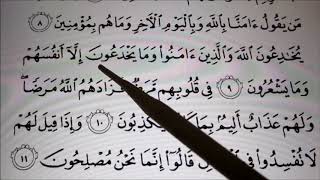 مَن يَقُولُ ءَامَنَّا بِاللَّهِ وَبِالْيَوْمِ الْآخِرِ وَمَاهُم بِمُؤْمِنِينَ ٨
يُخَٰدِعُونَ اللَّهَ وَالَّذِينَ ءَامَنُوا۟ وَمَا يَخْدَعُونَ إِلَّآ أَنفُسَهُمْ
وَمَا يَشْعُرُونَ ٩ فِى قُلُوبِهِم فَزَادَهُمُ اللَّهُ مَرَضًا ۖ
وَلَهُمْ عَذَابٌ أَلِيمٌۢ بِمَا يَكْذِبُونَ ١٠ وَإِذَا قِيلَ لَهُمْ
لَا تُفْسِدُوا۟ فِى قَالُوٓا۟ إِنَّمَا نَحْنُ مُصْلِحُونَ ١١